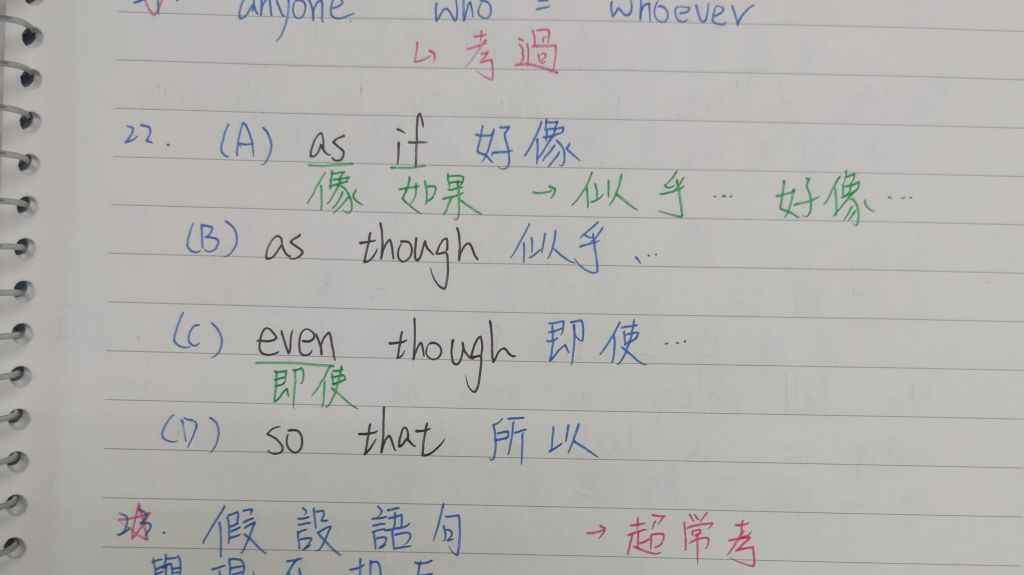 anyone who = whoever
↳ 考過
22. (A) as if 好像
像 如果 → 似乎… 好像…
(B) as though 似乎…
(C) even though 即使…
即使
(D) so that 所以
假設語句 → 超常考